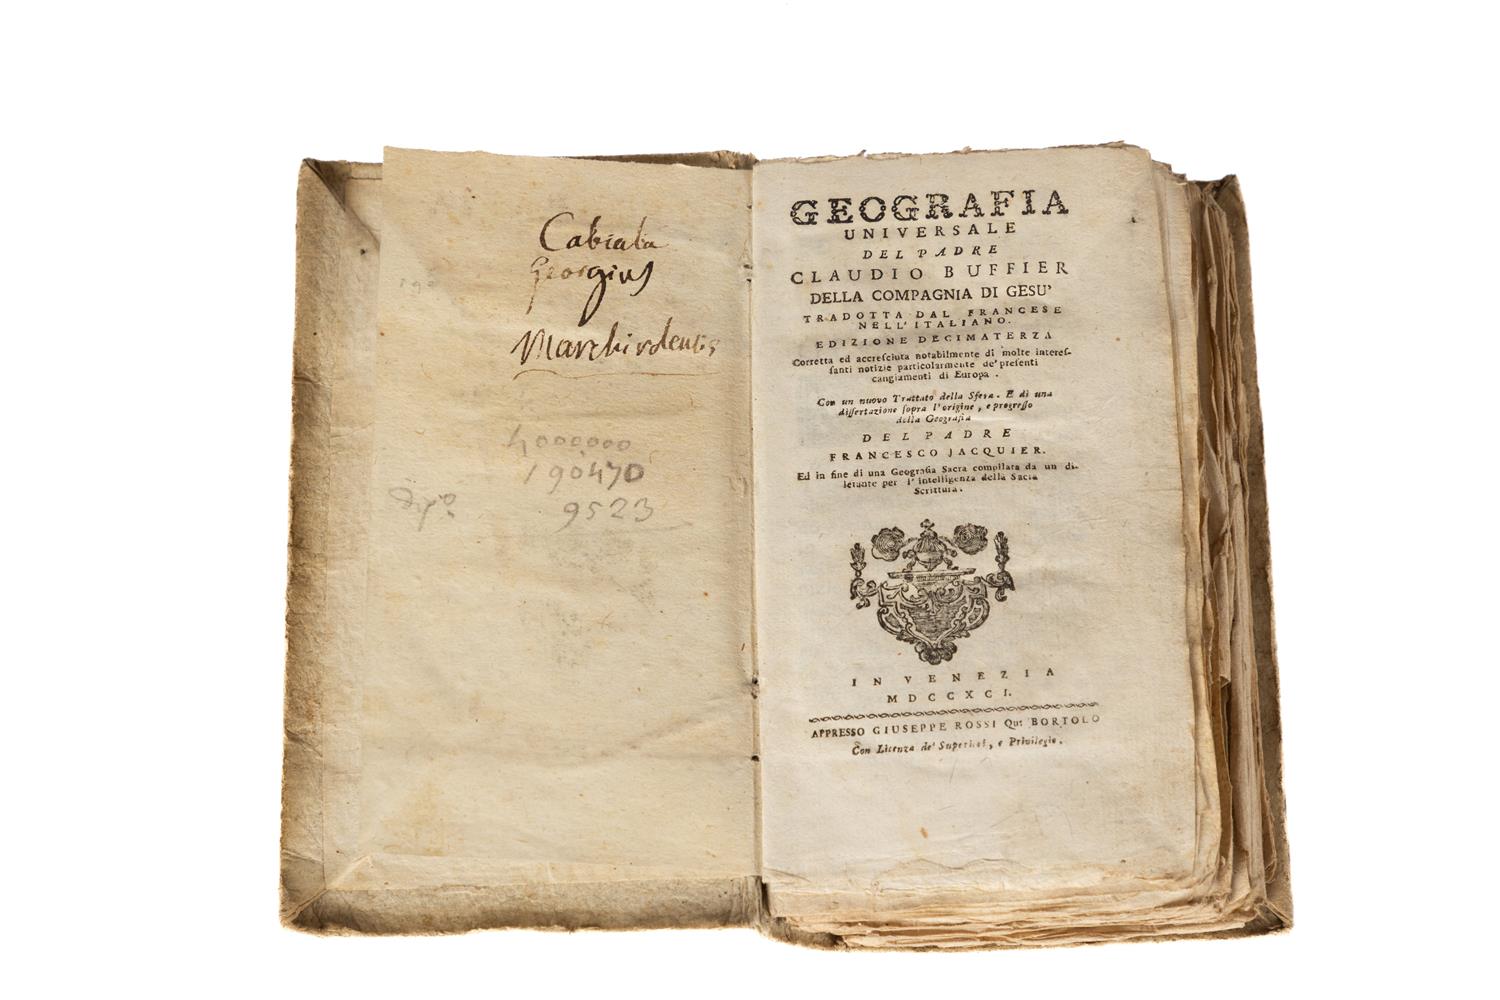 Cabiala
Georgius
4000000
190470
9523
GEOGRAFIA
UNIVERSALE
DEL PADRE
CLAUDIO BUFFIER
DELLA COMPAGNIA DI GESU'
TRADOTTA DAL FRANCESE
NELL' ITALIANO.
EDIZIONE DECIMATERZA
Corretta ed accresciuta notabilmente di molte interes-
santi notizie particolarmente de' presenti
cangiamenti di Europa.
Con un nuovo Trattato della Sfera. E di una
dissertazione sopra l'origine, e progresso
della Geografia
DEL PADRE
FRANCESCO JACQUIER.
Ed in fine di una Geografia Sacra compilata da un di-
letante per l'intelligenza della Sacra
Scrittura.
IN VENEZIA
MDCCXCI.
APPRESSO GIUSEPPE ROSSI Qu: BORTOLO
Con Licenza de' Superiori, e Privilegio.